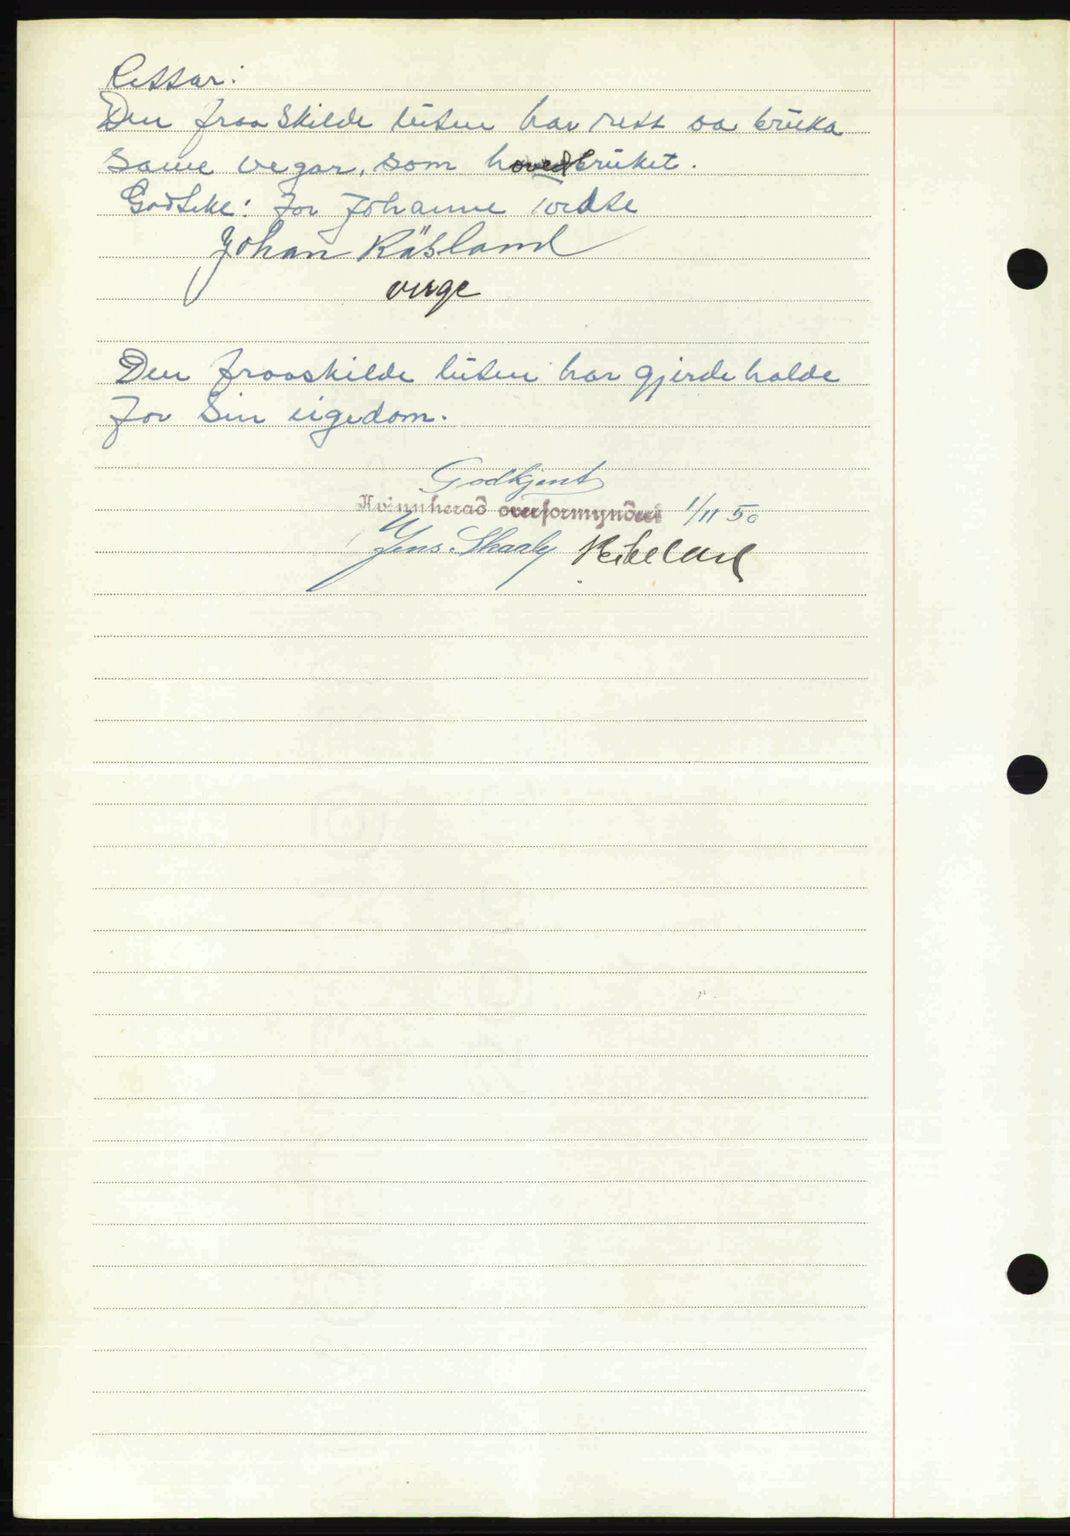 Rettar:
Den fraaskilde luten har rett aa bruka
same vegar, som hovedbruket.
Godteke: For Johanne
Johan Råsland
verge
Den fraaskilde luten har gjerdehalde
for sin eigedom.
Godkjent
Kvinnherad overformynderi 1/11 50
Jens Skaaly